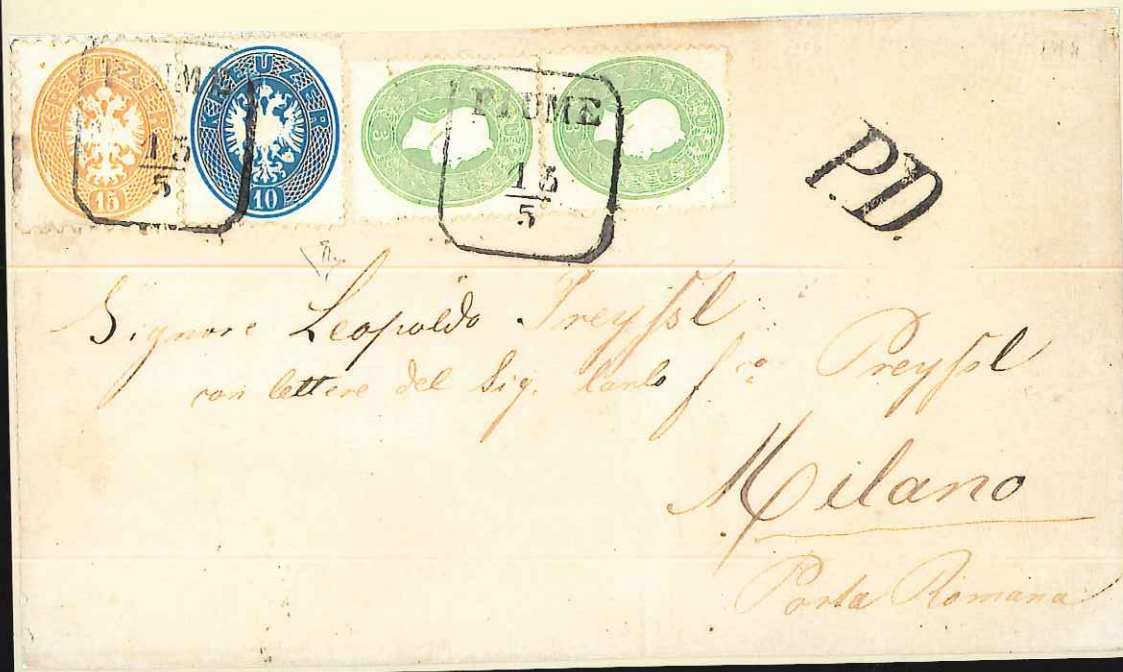 KREUZER
15
KREUZER
10
3
FIUME
15
5
FIUME
15
5
P.D.
Signore Leopoldo Preyssl
con lettere del Sig. Carlo fro Preyssl
Milano
Porta Romana